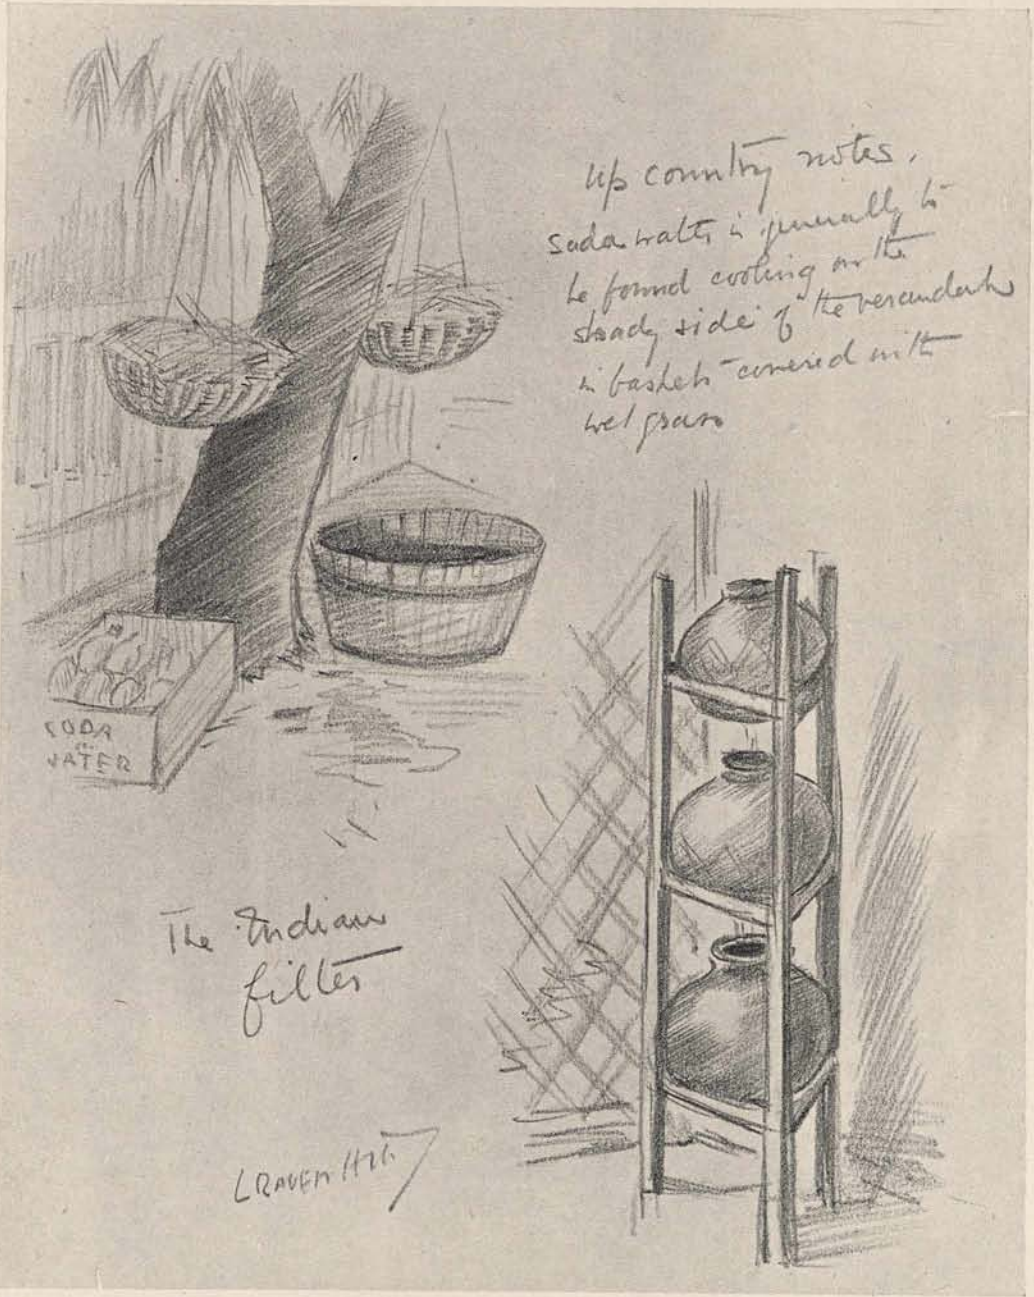 Up country notes.
Soda water is generally to
be found cooling on the
shady side of the verandah
in baskets covered with
wet grass
SODA
WATER
The Indian
filter
L RAVEN HILL